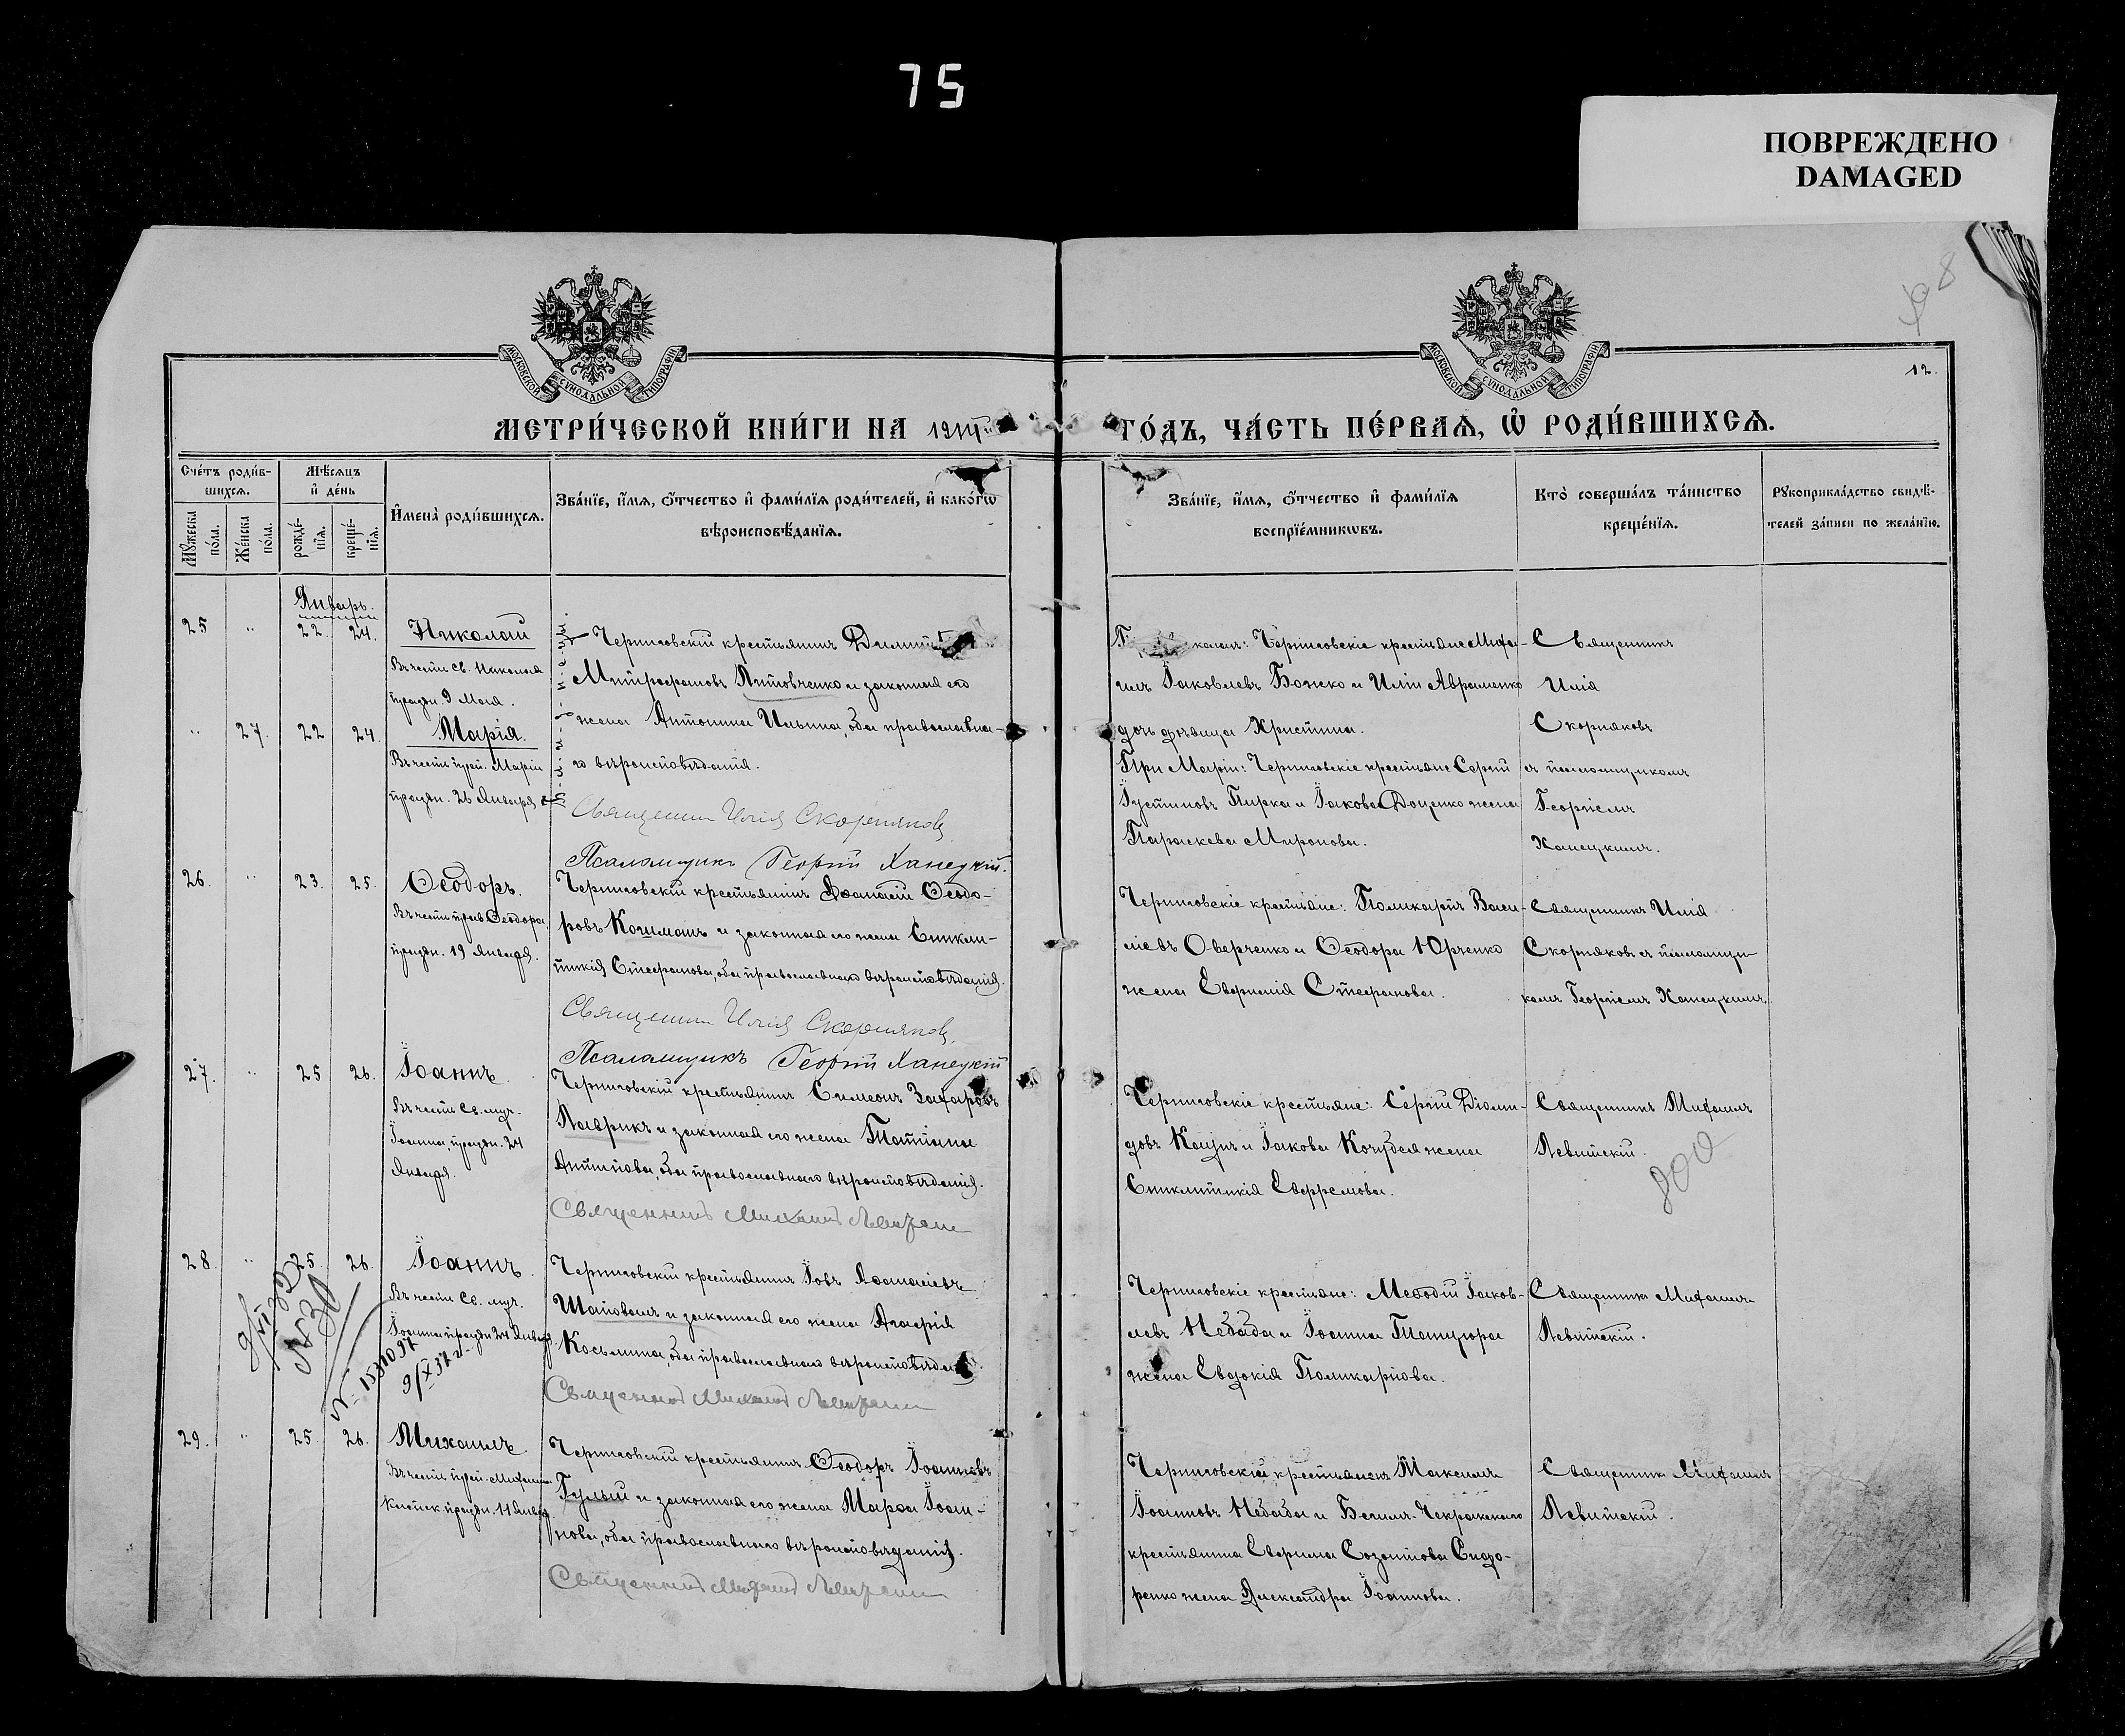 75
ПОВРЕЖДЕНО
DAMAGED
98
12.
МОСКОВСКОЙ СѴНОДАЛЬНОЙ ТИПОГРАФІИ
МОСКОВСКОЙ СѴНОДАЛЬНОЙ ТИПОГРАФІИ
МЕТРИ́ЧЕСКОЙ КНИ́ГИ НА
ГО́ДЪ, ЧА́СТЬ ПЕ́РВАѦ, Ѡ҆ РОДИ́ВШИХСѦ.
Сче́тъ роди́в-
шихсѧ.
Мꙋжеска по́ла.
Же́нска по́ла.
Мѣ́сѧцъ
и҆ де́нь
рожде́-нїѧ.
креще́-нїѧ.
И҆мена̀ роди́вшихсѧ.
Зва́нїе, и҆́мѧ, ѻ҆́тчество и҆ фами́лїѧ роди́телей, и҆ како́гѡ
вѣроисповѣ́данїѧ.
Зва́нїе, и҆́мѧ, ѻ҆́тчество и҆ фами́лїѧ
воспрїе́мникѡвъ.
Кто̀ соверша́лъ та́инство
креще́нїѧ.
Рꙋкоприкла́дство свидѣ́-
телей за́писи по жела́нїю.
Январь.
25 " 22. 24. Николай
Въ честь св. Николая
праздн. 9 Мая.
" 27. 22 24. Марія.
Въ честь преп. Маріи
праздн. 26 Января
Черниговскій крестьянинъ
Митрофановъ Литовченко и законная его
жена Антонина Ильина, оба православна-
го вѣроисповѣданія.
Священник Илія Скорняковъ
Псаломщикъ Георгій Ханецкій.
Черниговскіе крестьяне Миха-
илъ Іаковлевъ Божко и Иліи Авраменко
дочь дѣвица Христина.
При Маріи: Черниговскіе крестьяне Сергій
Іустиновъ Пирка и Іакова Доценко жена
Параскева Миронова.
Священникъ
Илія
Скорняковъ
съ псаломщикомъ
Георгіемъ
Ханецкимъ.
26. " 23. 25. Ѳеодоръ.
Въ честь прав. Ѳеодора
праздн. 19 Января.
Черниговскій крестьянинъ Аѳанасій Ѳеодо-
ровъ Кошманъ и законная его жена Синкли-
тикія Стефанова, оба православнаго вѣроисповѣданія.
Священник Илія Скорняковъ
Псаломщикъ Георгій Ханецкій
Черниговскіе крестьяне: Поликарпъ Васи-
ліевъ Оверченко и Ѳеодора Юрченко
жена Евфимія Стефанова.
Священникъ Илія
Скорняковъ съ псаломщи-
комъ Георгіемъ Ханецкимъ.
27. " 25 26. Іоаннъ.
Въ честь Св. муч.
Іоанна, праздн. 24
Января.
Черниговскій крестьянинъ Симеонъ Захаровъ
Лаврикъ и законная его жена Татіана
Антипова, оба православнаго вѣроисповѣданія.
Священникъ Михаилъ Левитскій
Черниговскіе крестьяне: Сергій Діоми-
довъ Кацунъ и Іакова Кочубея жена
Синклитикія Евфремова.
Священникъ Михаилъ
Левитскій.
800
28. " 25. 26. Іоаннъ.
Въ честь Св. муч.
Іоанна праздн 24 Января
9/X 37
Черниговскій крестьянинъ Іовъ Аѳанасіевъ
Шаповалъ и законная его жена Агафія
Косьмина, оба православнаго вѣроисповѣданія
Священникъ Михаилъ Левитскій
Черниговскіе крестьяне: Меѳодій Іаков-
левъ Небаба и Іоанна Танцюра
жена Евдокія Поликарпова.
Священникъ Михаилъ
Левитскій.
29. " 25. 26. Михаилъ.
Въ честь преп. Михаила
праздн. 11 Января
Черниговскій крестьянинъ Ѳеодоръ Іоанновъ
Гулый и законная его жена Марѳа Іоан-
нова, оба православнаго вѣроисповѣданія.
Священникъ Михаилъ Левитскій
Черниговскій крестьянинъ Максимъ
Іоанновъ Небаба и
крестьянина Евфима Созонтова Сидо-
ренко жена Александра Іоаннова.
Священникъ Михаилъ
Левитскій.